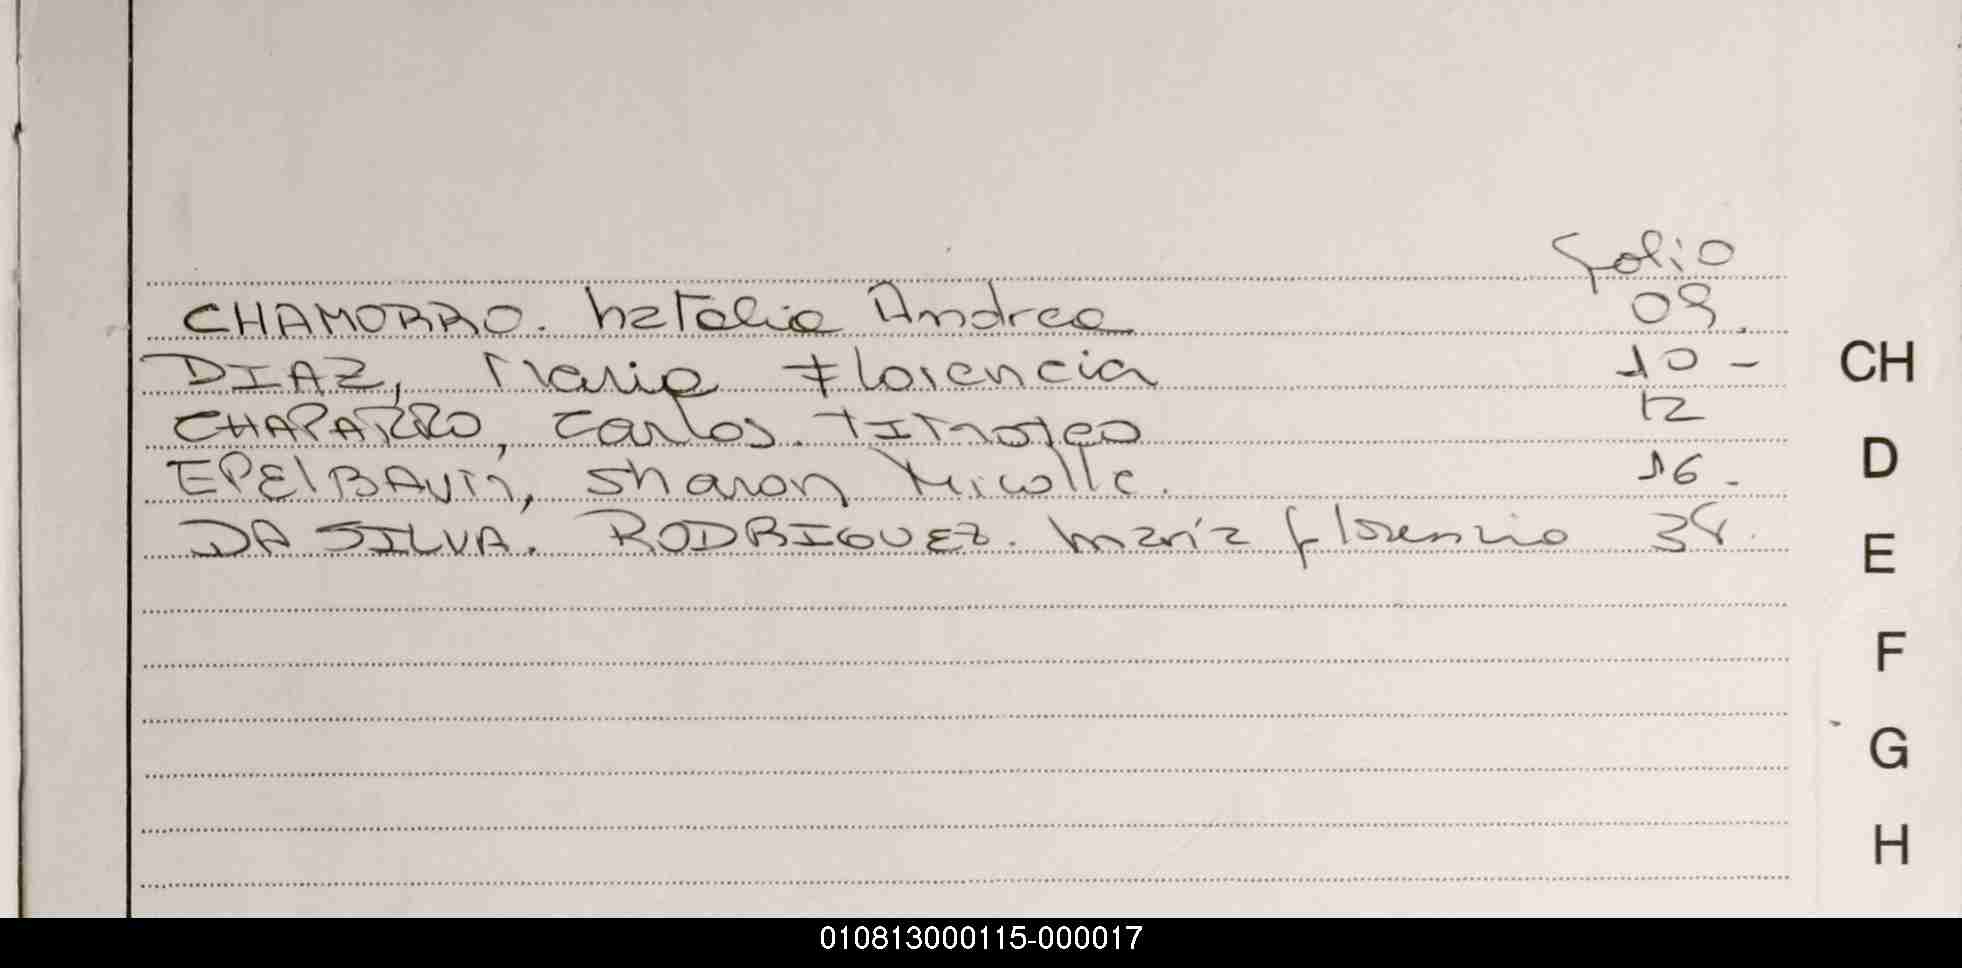 Folio
CHAMORRO. Natalia Andrea 09.
DIAZ, Maria Florencia 10 -
CHAPARRO, Carlos. TIMOTEO 12
EPElBAUM, Sharon Nicolle. 16.
DA SILVA. RODRIGUEZ. María florencia
CH
D
E
F
G
H
010813000115-000017